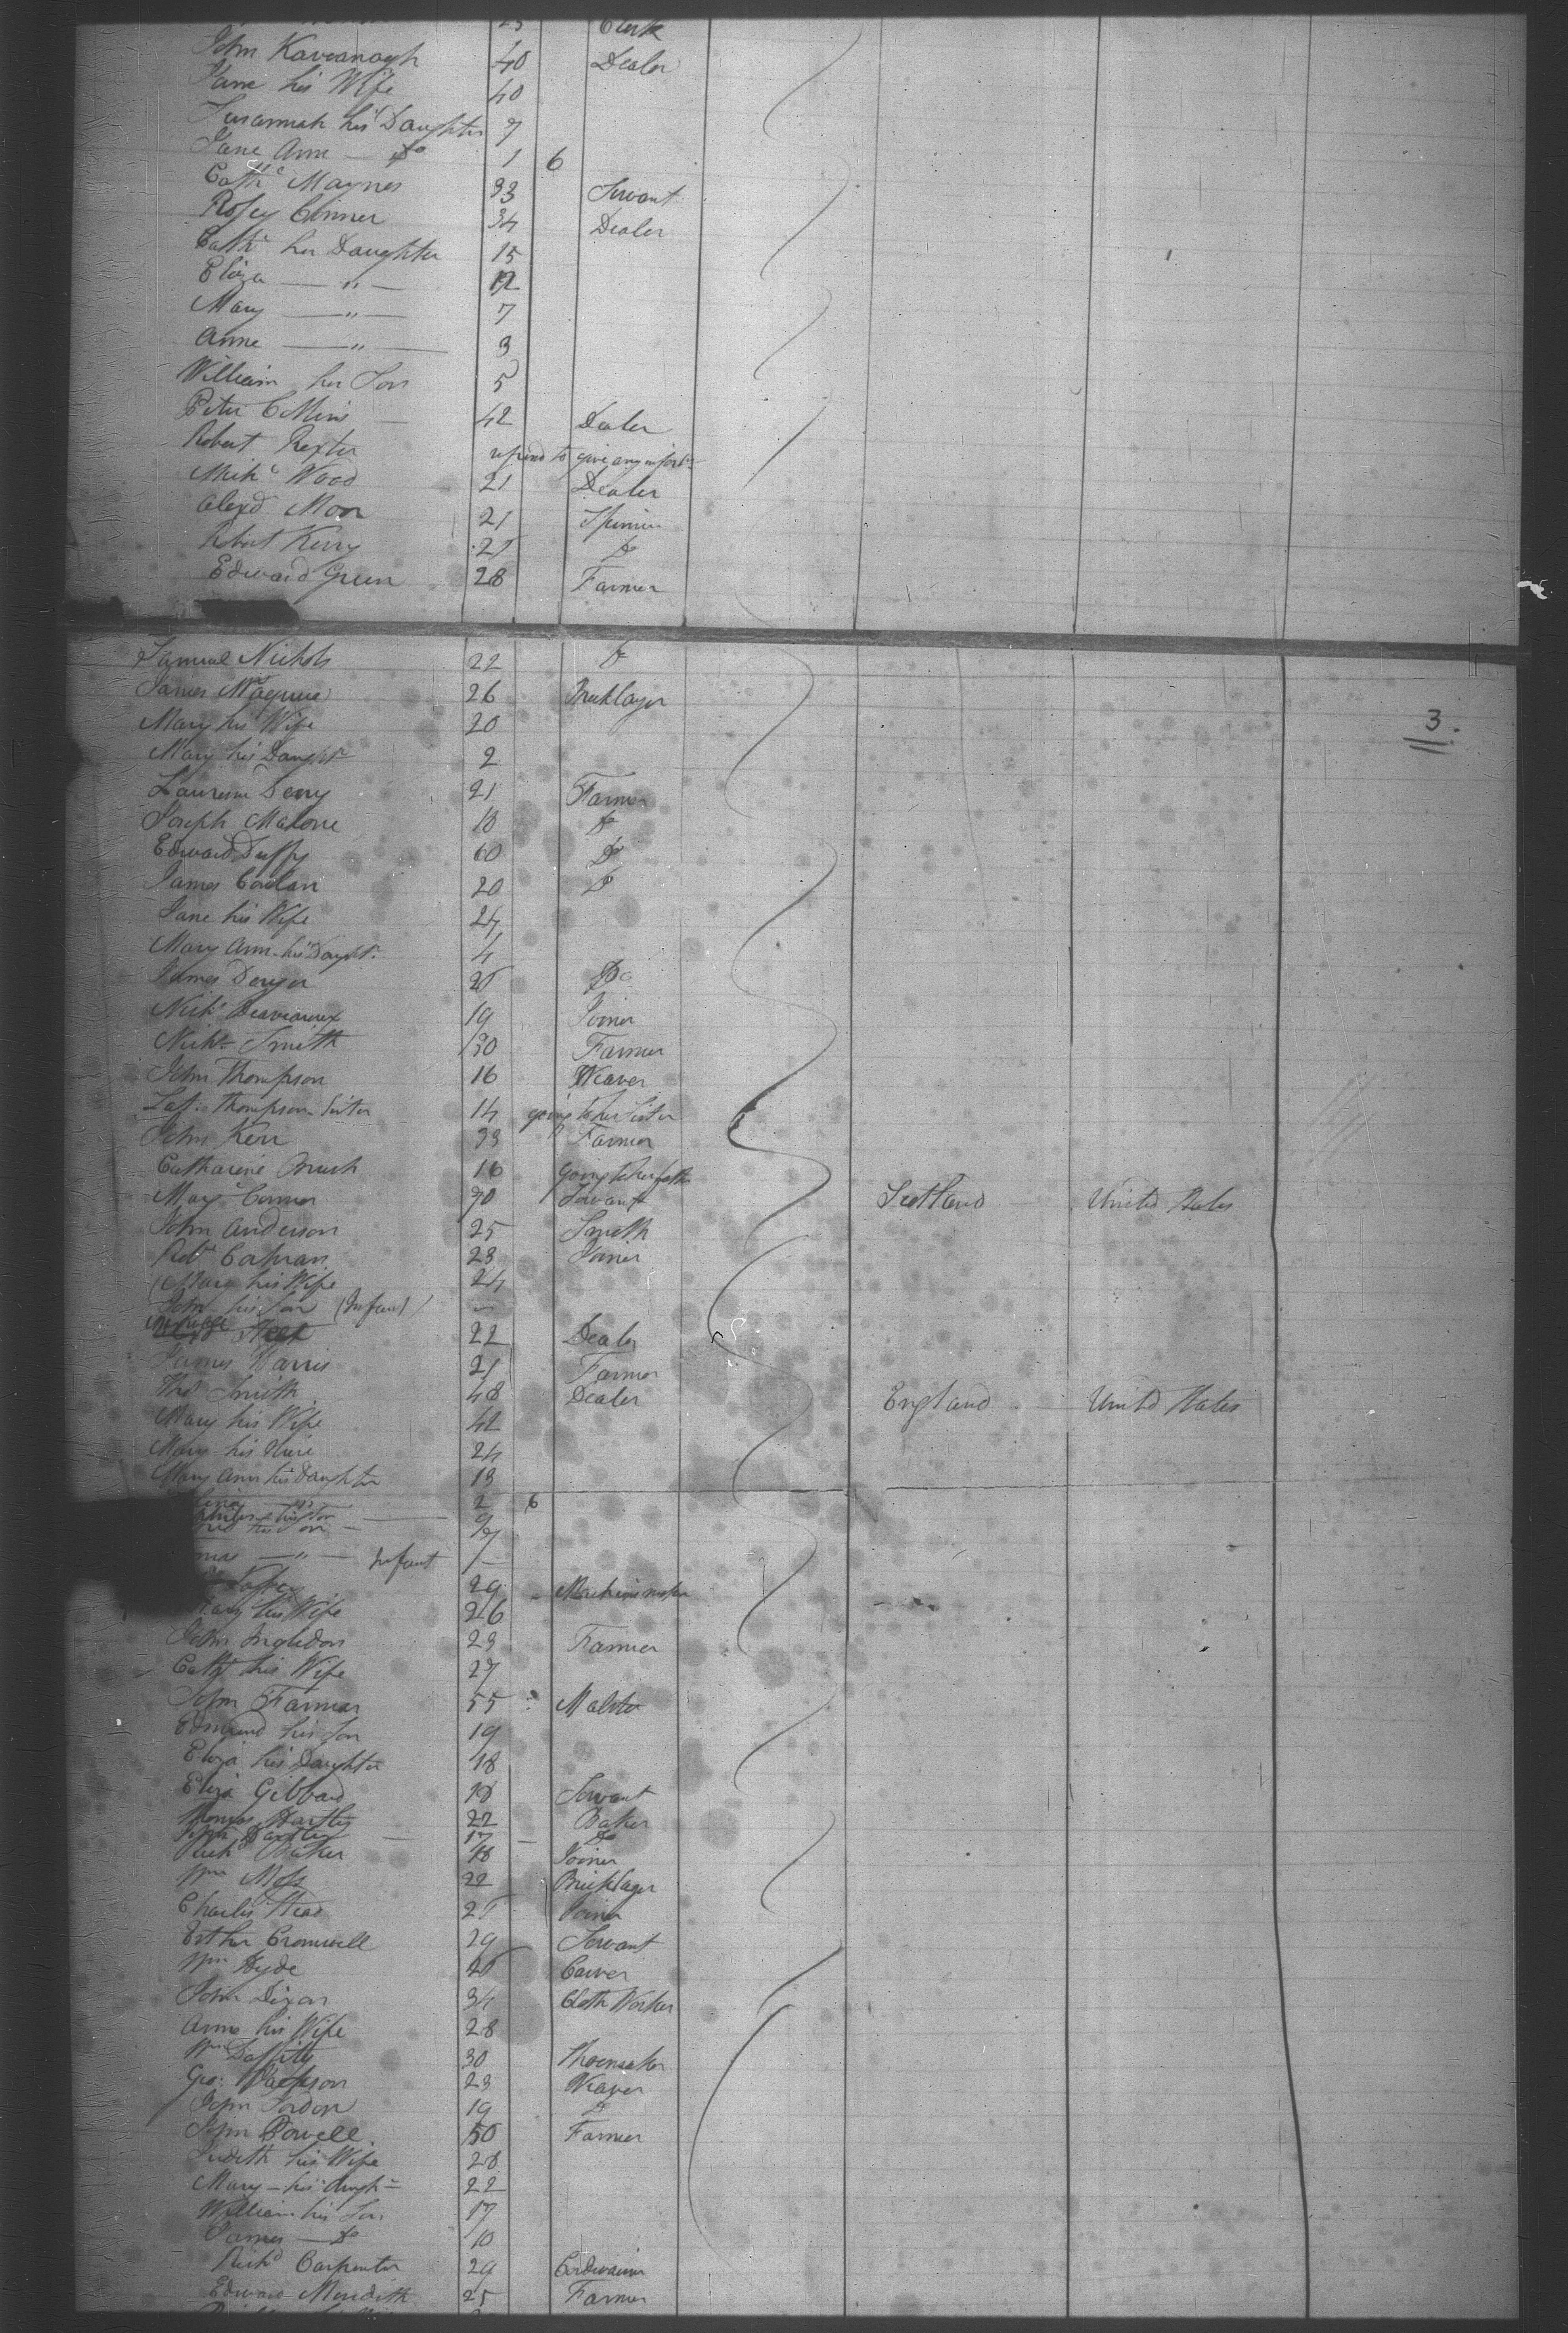 25 Clerk
John Kavanagh 40 Dealer
Jane his Wife 40
Susannah his Daughter 7
Jane Ann — Do 1 6
Cathe Maynes 33 Servant
Rosey Conner 34 Dealer
Cathe her Daughter 15
Eliza — " — 12
Mary — " — 7
Anne — " — 3
William her Son 5
Peter Collins 42 Dealer
Robert refused to give any
Michl Wood 21 Dealer
Alexd Moor 21
Robert Kerry 25 Do
Edward Green 28 Farmer
Samuel Nichols 22 Do
James Maguire 26 Bricklayer
3.
Mary his Wife 20
Mary his Daughtr 2
Laurence 21 Farmer
Joseph Malone 18 Do
Edward Duffy 60 Do
James Conlan 20 Do
Jane his Wife 24
Mary Ann his Daughtr 4
James 25 Do
Nichs 19 Joiner
Nichs Smith 30 Farmer
John Thompson 16 Weaver
Thompson Sister 14 going to her Sister
John Kerr 33 Farmer
Catharine Brush 16 Going to her father
Mary Connor 30 Servant Scotland United States
John Anderson 25 Smith
Robt 23 Joiner
Mary his Wife 24
John his Son (Infant) —
22 Dealer
James Harris 21 Farmer
Thos Smith 48 Dealer England United States
Mary his Wife 42
Mary his Niece 24
Mary Ann his Daughter 13
— " — 2 6
his Son — 9
his Son — 7
— " — Infant —
29 Machine maker
Mary his Wife 26
John Ingledon 29 Farmer
Cathe his Wife 27
John Farmer 55 Malster
Edmund his Son 19
Eliza his Daughter 18
Eliza Gibbard 18 Servant
Thomas Hartley 22 Baker
Hartley — 17 — Do
Richd Baker 18 Joiner
Wm Moss 22 Bricklayer
Charles Head 25 Joiner
Esther Cromwell 29 Servant
Wm Hyde 25 Carver
John Dixon 34 Cloth Worker
Anne his Wife 28
Wm 30 Shoemaker
Geo: Jackson 23 Weaver
John Jordon 19 Do
John Powell 50 Farmer
Judith his Wife 28
Mary — his daughr 22
William his Son 17
James — Do 10
Richd Carpenter 29 Cordwainer
Edward Meredith 25 Farmer